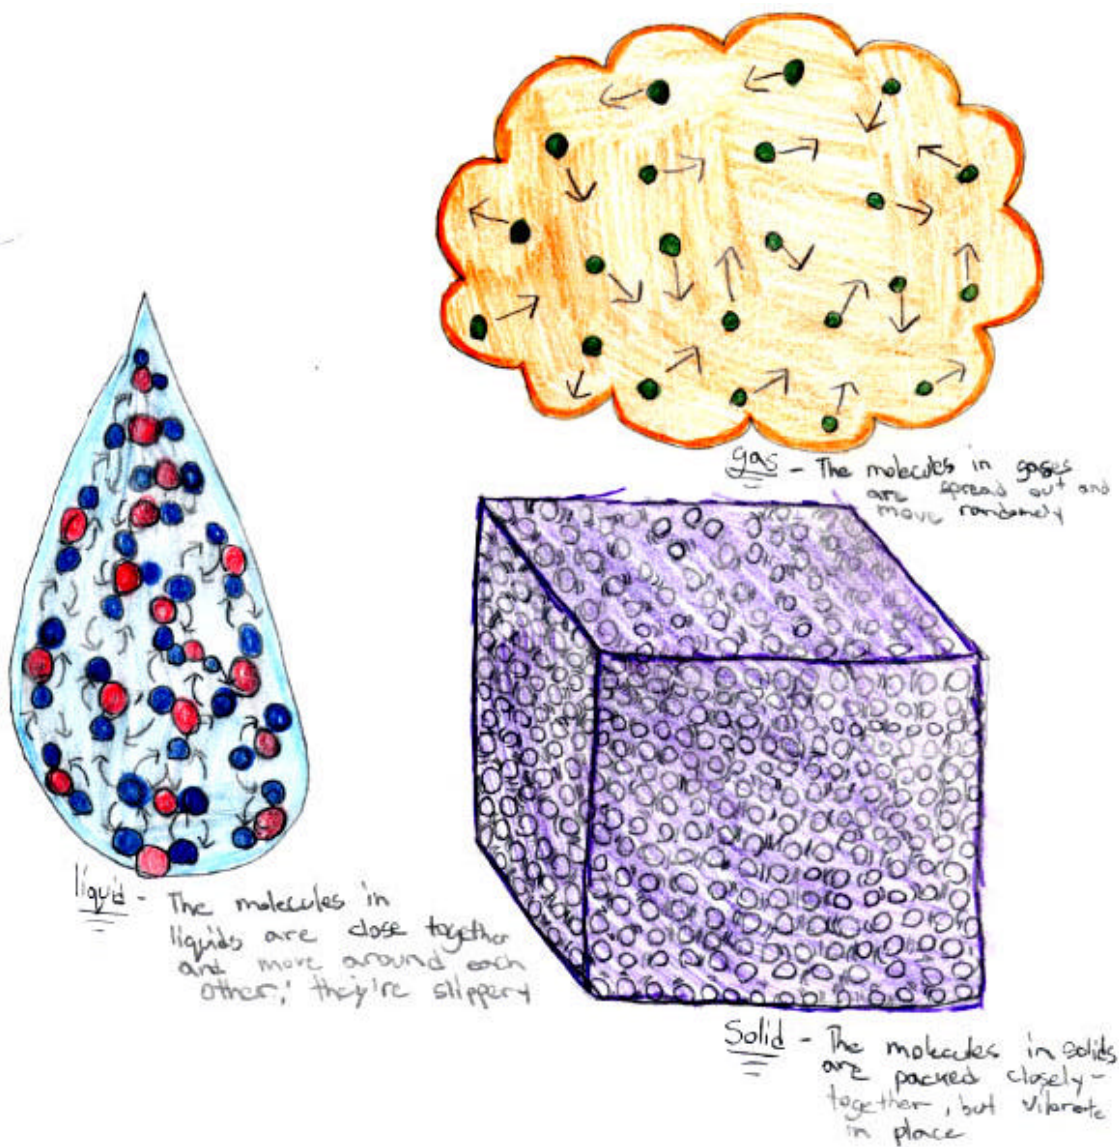 gas - The molecules in gases
are spread out and
move randomely
liquid - The molecules in
liquids are close together
and move around each
other, they're slippery
Solid - The molecules in solids
are packed closely-
together, but vibrate
in place